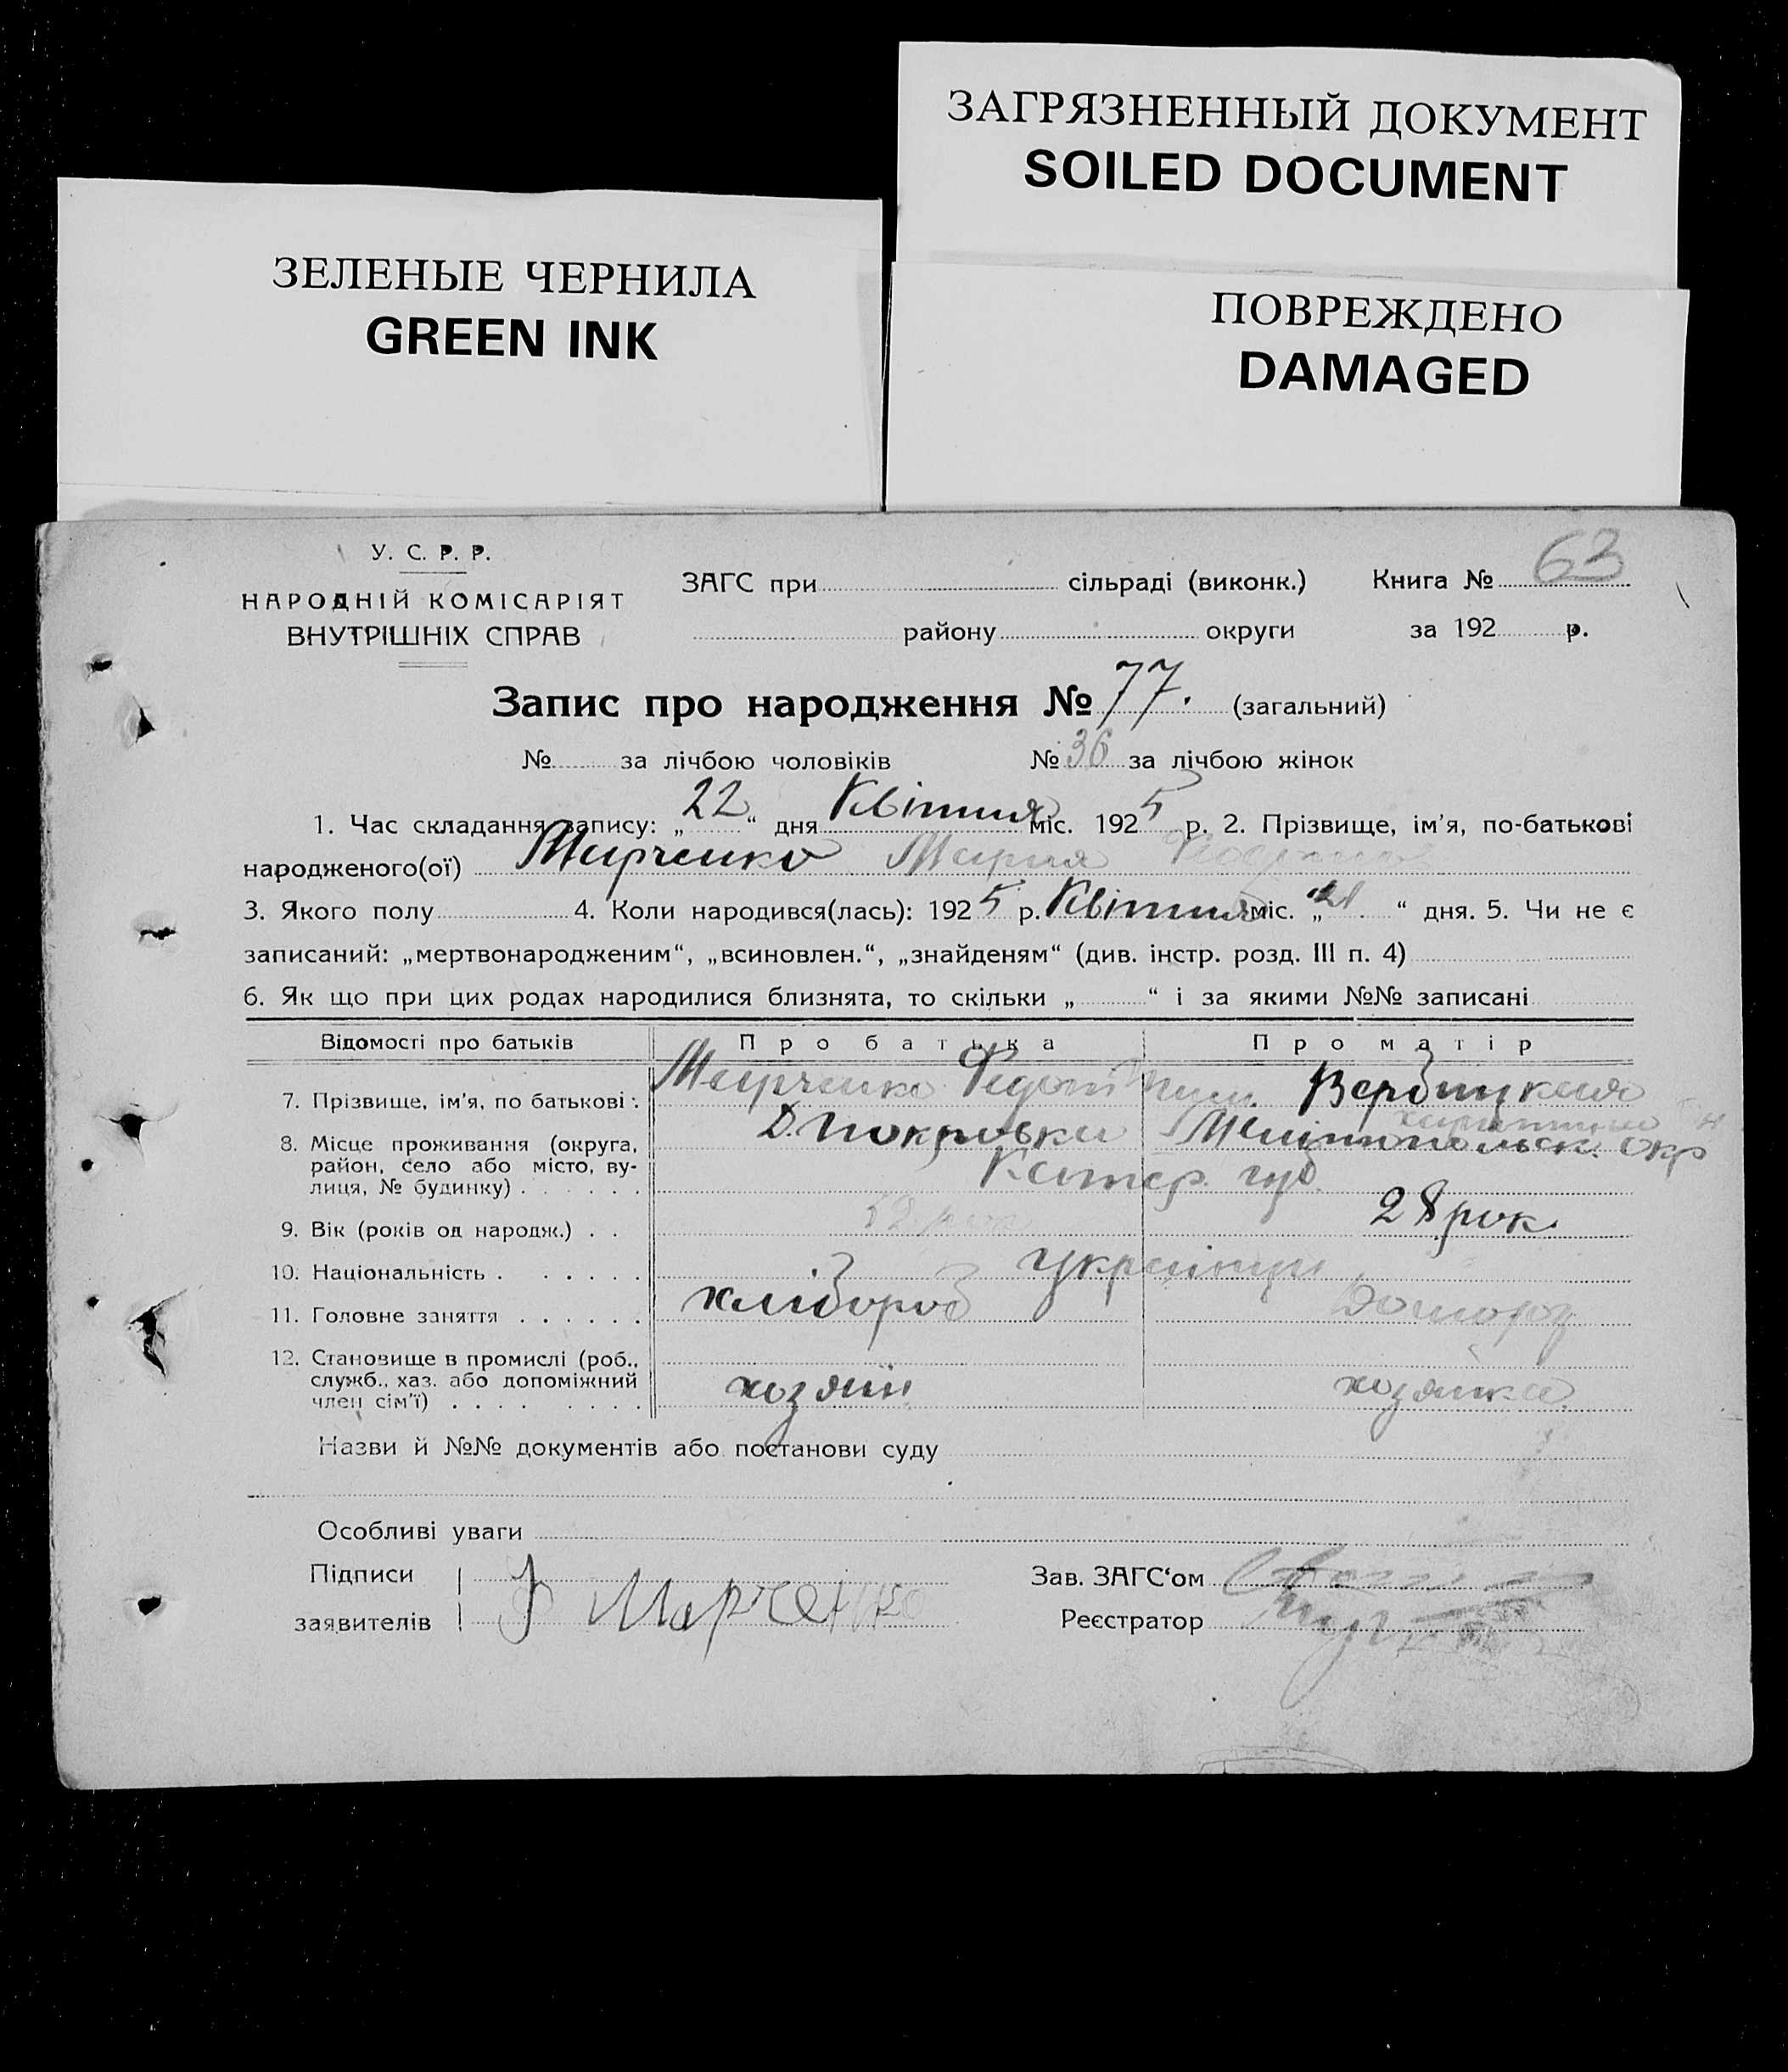 ЗАГРЯЗНЕННЫЙ ДОКУМЕНТ
SOILED DOCUMENT
ЗЕЛЕНЫЕ ЧЕРНИЛА
GREEN INK
ПОВРЕЖДЕНО
DAMAGED
У. С. Р. Р.
НАРОДНІЙ КОМІСАРІЯТ
ВНУТРІШНІХ СПРАВ
ЗАГС при сільраді (виконк.) Книга № 63
району округи за 192 р.
Запис про народження № 77. (загальний)
№ за лічбою чоловіків № 36 за лічбою жінок
1. Час складання запису: „22“ дня Квітня міс. 1925 р. 2. Прізвище, ім'я, по-батькові
народженого(ої) Марченко Мария
3. Якого полу 4. Коли народився(лась): 1925 р. Квітня міс. „21“ дня. 5. Чи не є
записаний: „мертвонародженим“, „всиновлен.“, „знайденям“ (див. інстр. розд. III п. 4)
6. Як що при цих родах народилися близнята, то скільки „ “ і за якими №№ записані
Відомості про батьків Про батька Про матір
7. Прізвище, ім'я, по батькові: Марченко Федот Вербицкая
8. Місце проживання (округа, Д. Покровка Мелітопольск. Окр
район, село або місто, ву- Катер. губ.
лиця, № будинку)
9. Вік (років од народж.) 28 рок.
10. Національність українци
11. Головне заняття хлібороб Домогоз
12. Становище в промислі (роб.,
служб., хаз. або допоміжний хозяїн хозяйка
член сім'ї)
Назви й №№ документів або постанови суду
Особливі уваги
Підписи Зав. ЗАГС'ом
заявителів Ф Марченко Реєстратор